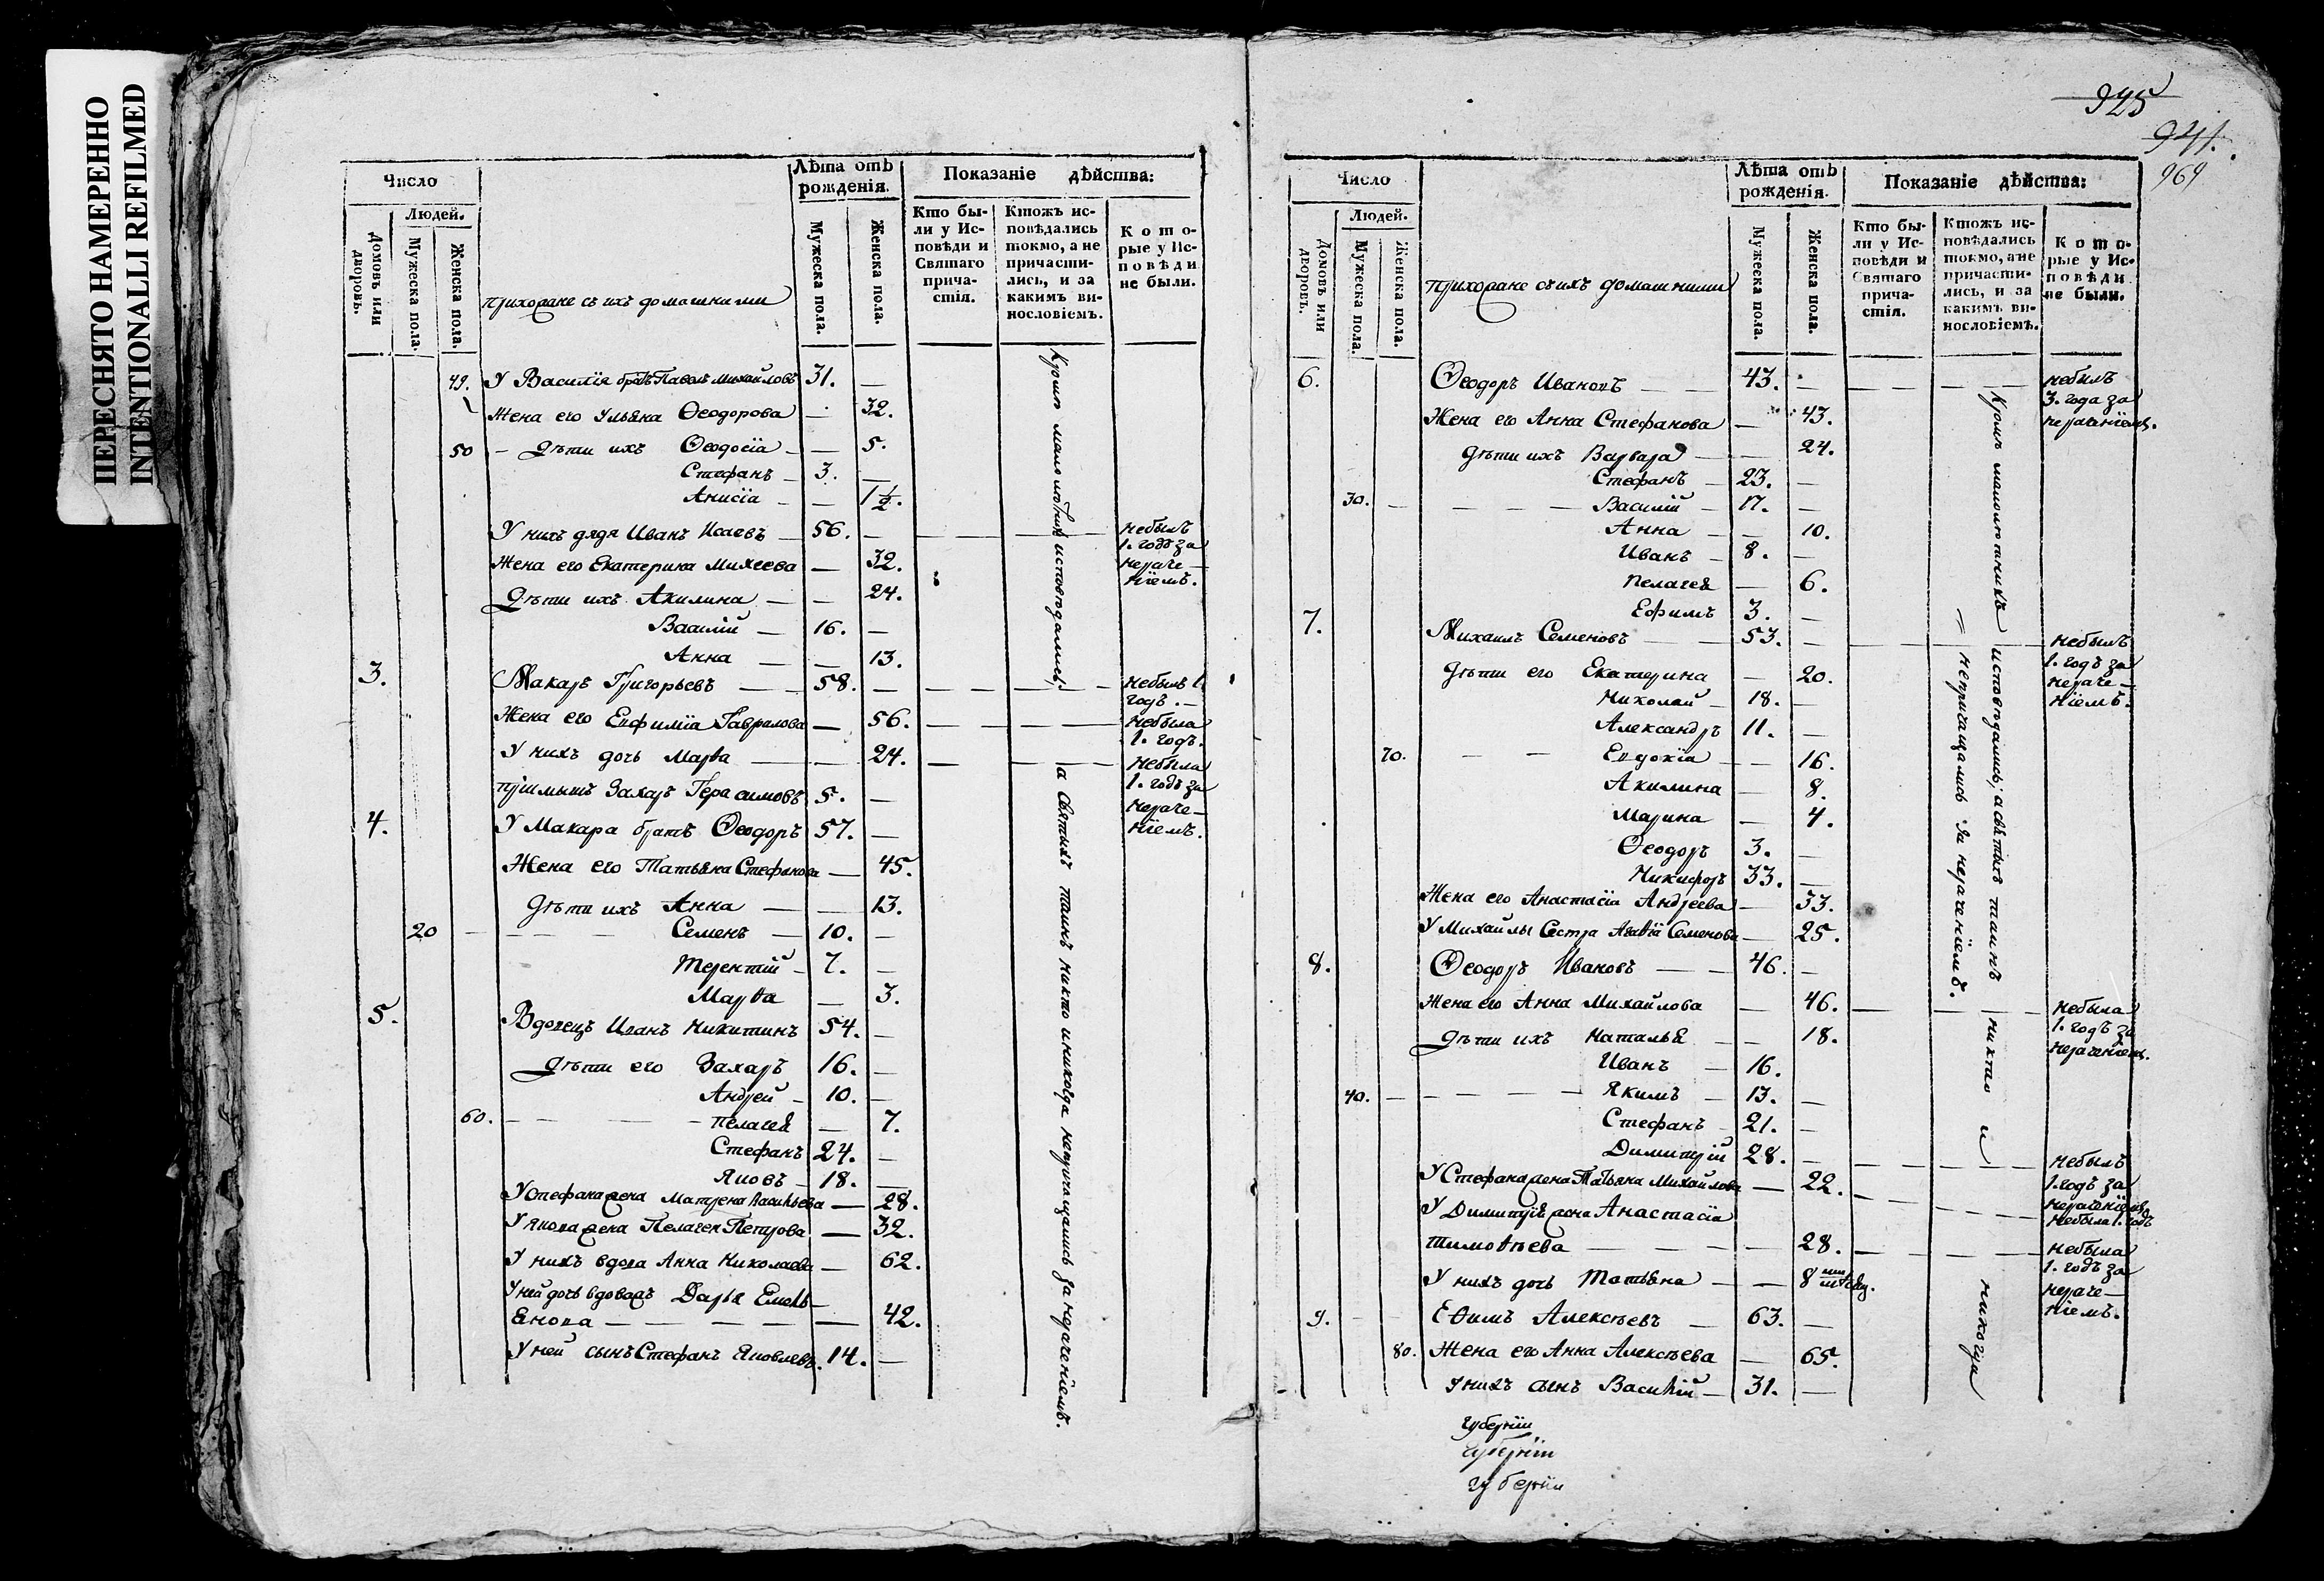 ПЕРЕСНЯТО НАМЕРЕННО
INTENTIONALLI REFILMED
Число
Людей.
Домовъ или дворовъ.
Мужеска пола.
Женска пола.
прихожане съ ихъ домашними
Лѣта отъ рожденія.
Мужеска пола.
Женска пола.
Показаніе дѣйства:
Кто бы-
ли у Ис-
повѣди и
Святаго
прича-
стія.
Ктожъ ис-
повѣдались
токмо, а не
причасти-
лись, и за
какимъ ви-
нословіемъ.
Кото-
рые у Ис-
повѣди
не были.
49. У Василія братъ Павелъ Михайловъ 31. —
Жена его Ульяна Ѳеодорова — 32.
50 — Дѣти ихъ Ѳеодосіа — — 5.
Стефанъ — 3. —
Анисіа — — 1½.
У нихъ дядя Иванъ Исаевъ — 56. — небылъ
1. годъ за
нераче—
ніемъ.
Жена его Екатерина Михеева — 32.
Дѣти ихъ Акилина — — 24.
Василій — 16. —
Анна — — 13.
3. Макаръ Григорьевъ — 58. — небылъ 1.
годъ. —
Жена его Евфиміа Гаврилова — 56. — небыла
1. годъ.
У нихъ дочь Марѳа — — 24. — небыла
1. годъ за
нераче—
ніемъ.
пріимышъ Захаръ Герасимовъ 5. —
4. У Макара братъ Ѳеодоръ 57. —
Жена его Татьяна Стефанова — 45.
Дѣти ихъ Анна — — 13.
20 — Семенъ — 10. —
Терентій — 7. —
Марѳа — 3.
5. Вдовецъ Иванъ Никитинъ 54. —
Дѣти его Захаръ 16. —
Андрей — 10. —
60. — Пелагея — 7.
Стефанъ 24. —
Яковъ — 18. —
У Стефана жена Матрена Васильева — 28.
У Якова жена Пелагея Петрова — 32.
У нихъ вдова Анна Николаева — 62.
У ней дочь вдова Дарья Емель—
янова — — — — 42.
У ней сынъ Стефанъ Яковлевъ. 14. —
Кромѣ малолѣтнихъ исповѣдались,
а Святыхъ таинъ никто и никогда непричащались за нераченіемъ.
925
941.
969
Число
Людей.
Домовъ или дворовъ.
Мужеска пола.
Женска пола.
прихожане съ ихъ домашними
Лѣта отъ рожденія.
Мужеска пола.
Женска пола.
Показаніе дѣйства:
Кто бы-
ли у Ис-
повѣди и
Святаго
прича-
стія.
Ктожъ ис-
повѣдались
токмо, а не
причасти-
лись, и за
какимъ ви-
нословіемъ.
Кото-
рые у Ис-
повѣди
не были.
6. Ѳеодоръ Ивановъ — — 43. — небылъ
3. года за
нераченіемъ.
Жена его Анна Стефанова — 43.
Дѣти ихъ Варвара — — 24.
Стефанъ — 23. —
30. — Василій — 17. —
Анна — — 10.
Иванъ — 8. —
Пелагея — 6.
Ефимъ 3. —
7. Михаилъ Семеновъ — — 53. — небылъ
1. годъ за
нераче—
ніемъ.
Дѣти его Екатерина — 20.
Николай — 18. —
Александръ 11. —
70. — Евдокіа — — 16.
Акилина — 8.
Марина — 4.
Ѳеодоръ 3. —
Никифоръ 33. —
Жена его Анастасіа Андреева — 33.
У Михайлы Сестра Агаѳіа Семенова — 25.
8. Ѳеодоръ Ивановъ — — 46. —
Жена его Анна Михайлова — 46. — небыла
1. годъ за
нераченіемъ.
Дѣти ихъ Наталья — — 18.
Иванъ — 16.
40. — Якимъ — 13. —
Стефанъ — 21. —
Димитрій 28. — небылъ
1. годъ за
нераченіемъ.
У Стефана жена Татьяна Михайлова — 22. — небыла 1. годъ
У Димитрія жена Анастасіа
Тимоѳѣева — — — 28. — небыла
1. годъ за
нераче—
ніемъ.
У нихъ дочь Татьяна — — 8 ми мѣсяц.
9. Еѳимъ Алексѣевъ — 63. —
80. Жена его Анна Алексѣева — 65.
У нихъ сынъ Василій — 31. —
Кромѣ малолѣтнихъ исповѣдались, а святыхъ таинъ никто и никогда
— непричащались за нераченіемъ.
Губерніи
Губерніи
Губерніи